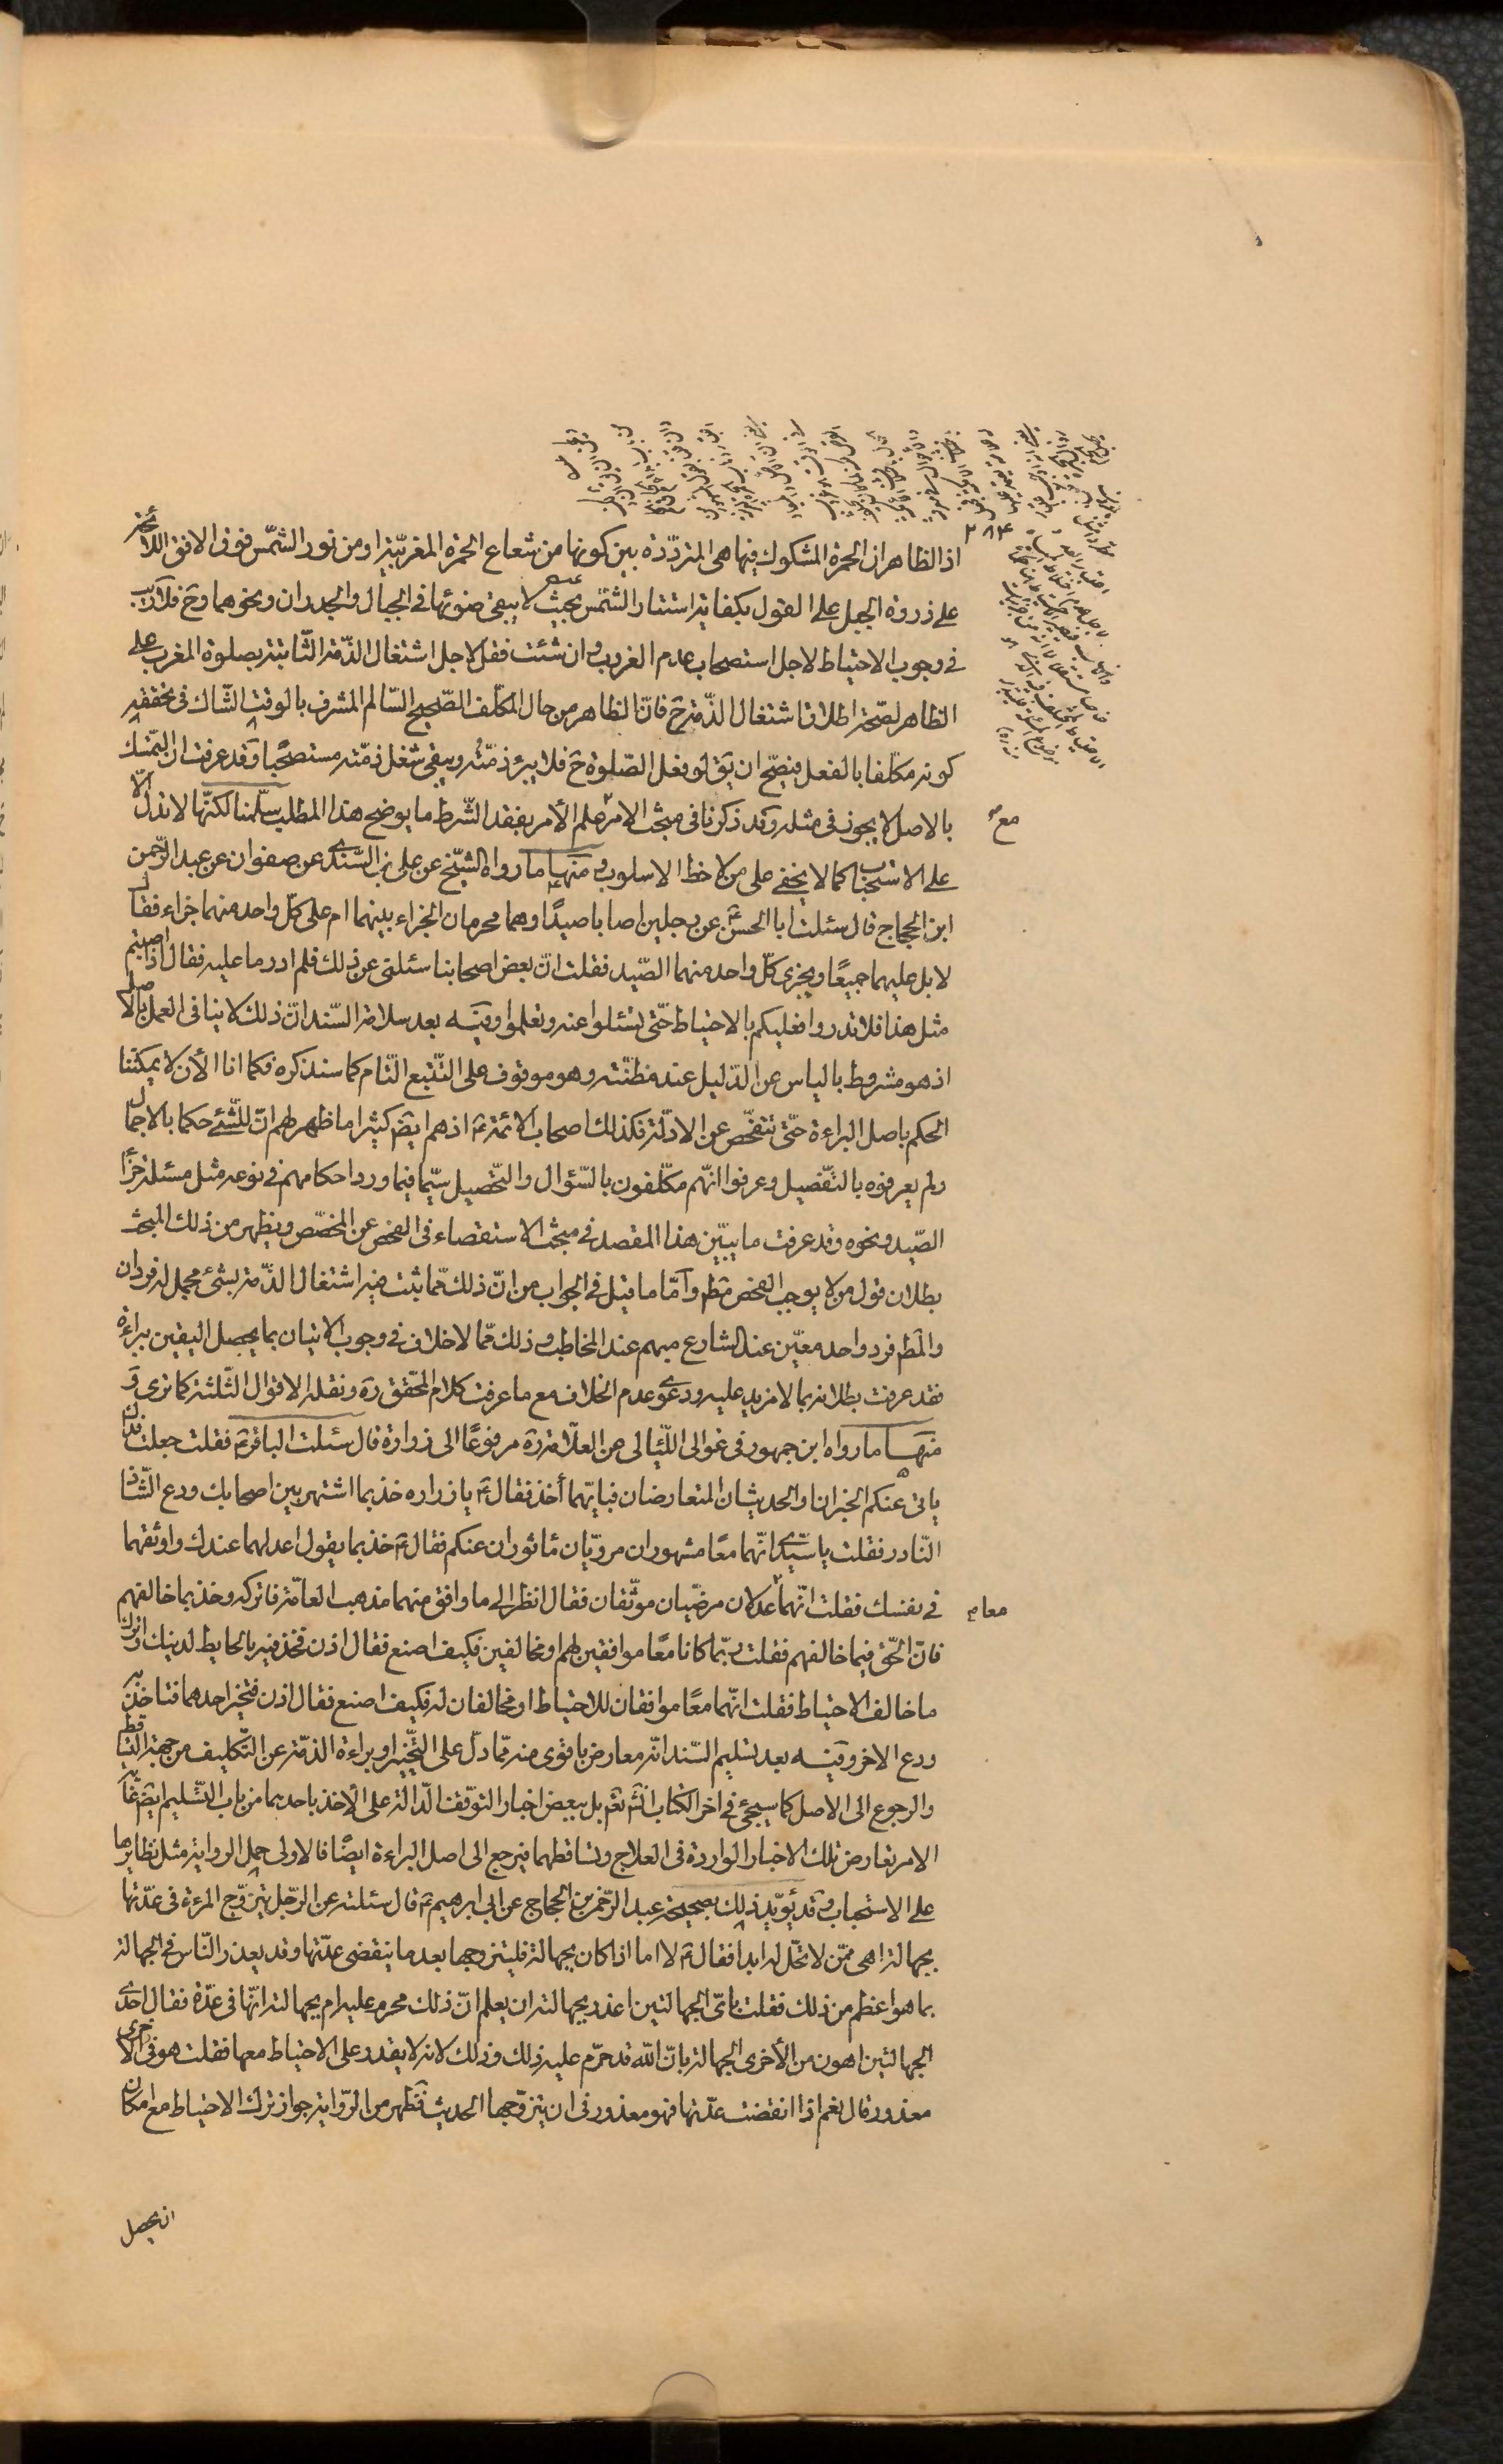 ٢٨٤
اذ الظاهر ان الحمرة المشكوك فيها هى المتردّدة بين كونها من شعاع الحمرة المغربيّة او من نور الشمّس فوق الافق اللائحة
على ذروة الجبل على القول بكفاية استتار الشمّس بحيث لا يبقى ضوئها فى الجبال والجدران ونحوهما وح فلا ريب
فى وجوب الاحتياط لاجل استصحاب عدم الغروب وان شئت فقل لاجل اشتغال الذّمة الثّابتة بصلوة المغرب على
الظاهر لصّحة اطلاق اشتغال الذّمة ح فانّ الظاهر من حال المكلّف الصّحيح السّالم المشرف بالوقت الشّاك فى تحققه
كونه مكلّفا بالفعل فيصّح ان يقّ لو فعل الصّلوة ح فلا يبرء ذمّته ويبقى شغل ذمّته مستصحبًا وقد عرفت ان التمّسك
بالاصل لا يجوز فى مثله وقد ذكرنا فى مبحث الامر مع علم الأمر بفقد الشّرط ما يوضح هذا المطلب سلّمنا لكنّها لا تدل الّا
على الاستحباب كما لا يخفى على من لاحظ الاسلوب ومنها ما رواه الشيّخ عن على بن السّندى عن صفوان عن عبد الرّحمن
ابن الحجاج قال سئلت ابا الحسن ع عن رجلين اصابا صيدًا وهما محرمان الجزاء بينهما ام على كلّ واحد منهما جزاء فقال
لا بل عليهما جميعًا ويجزى كلّ واحد منهما الصّيد فقلت انّ بعض اصحابنا سئلنى عن ذلك فلم ادر ما عليه فقال اذا اصبتم
مثل هذا فلا تدروا فعليكم بالاحتياط حتّى تسئلوا عنه وتعلموا وفيه بعد سلامة السّند انّ ذلك لا ينافى العمل بالاصل
اذ هو مشروط بالياس عن الدّليل عند مظنّته وهو موقوف على التّتبع التّام كما سنذكره فكما انا الأن لا يمكننا
الحكم باصل البراءة حتّى نتفحّص عن الادلّة فكذلك اصحاب الائمة ع اذ هم ايضً كثيرا ما ظهر لهم انّ للشّئ حكما بالاجمال
ولم يعرفوه بالتفّصيل وعرفوا انّهم مكلّفون بالسّؤال والتّحصيل سيّما فيما ورد احكامهم فى نوعه مثل مسئلة جزاء
الصّيد ونحوه وقد عرفت ما يبيّن هذا المقصد فى مبحث الاستقصاء فى الفحص عن المخصّص ويظهر من ذلك المبحث
بطلان قول من لا يوجب الفحص مط وامّا ما قيل فى الجواب من انّ ذلك مّما ثبت فيه اشتغال الذّمة بشئ مجمل له فردان
والمط فرد واحد معيّن عند الشارع مبهم عند المخاطب وذلك مّما لا خلاف فى وجوب الاتيان بما يحصل اليقين ببراءة
فقد عرفت بطلانه بما لا مزيد عليه ودعوى عدم الخلاف مع ما عرفت كلام المحّقق ره ونقله الاقوال الثّلثة كما ترى و
منها ما رواه ابن جمهور فى غوالى اللّئالى عن العلّامة ره مرفوعًا الى زرارة قال سئلت الباقر ع فقلت جعلت فداك
ياتى عنكم الخبران والحديثان المتعارضان فبايّهما أخذ فقال ع يا زراره خذ بما اشتهر بين اصحابك ودع الشّاذ
النّادر فقلت يا سيّدى انّهما معًا مشهوران مرويّان مأثوران عنكم فقال ع خذ بما يقول اعدلهما عندك واوثقهما
فى نفسك فقلت انّهما معا عدلان مرضيّان موثّقان فقال انظر الى ما وافق منهما مذهب العامّة فاتركه وخذ بما خالفهم
فانّ الحّق فيما خالفهم فقلت ربّما كانا معًا موافقين لهم او مخالفين فكيف اصنع فقال اذن فخذ فيه بالحايط لدينك واترك
ما خالف الاحتياط فقلت انّهما معًا موافقان للاحتياط او مخالفان له فكيف اصنع فقال اذن فتخيّر احدهما فتاخذ به
ودع الاخر وفيه بعد تسليم السّند انّه معارض باقوى منه ممّا دلّ على التّخيير او براءة الذمّة عن التّكليف من جهة التساقط
والرجوع الى الاصل كما سيجئ فى اخر الكتاب انشّ تعّ بل ببعض اخبار التوّقف الدّالة على الأخذ باحدهما من باب التّسليم ايضً غاية
الامر تعارض تلك الاخبار الواردة فى العلاج وتساقطهما فيرجع الى اصل البراءة ايضًا فالاولى حمل الرواية مثل نظايرها
على الاستحباب وقد يؤيّد ذلك بصحيحة عبد الرّحمن بن الحجاج عن ابى ابرهيم ع قال سئلته عن الرّجل يتزوّج المرءة فى عدّتها
بجهالة اهى ممّن لا تحّل له ابدا فقال ع لا اما اذا كان بجهالة فليتزوجها بعد ما ينقضى عدّتها وقد يعذر النّاس فى الجهالة
بما هو اعظم من ذلك فقلت باىّ الجهالتين اعذر بجهالته ان يعلم انّ ذلك محرم عليه ام بجهالته انّها فى عدّة فقال احدى
الجهالتين اهون من الأخرى الجهالة بانّ اللّه قد حرّم عليه ذلك وذلك لانه لا يقدر على الاحتياط معها فقلت هو فى الاخرى
معذور قال نعم اذا انقضت عدّتها فهو معذور فى ان يتزوّجها الحديث فظهر من الرّواية جواز ترك الاحتياط مع امكان
ان يحصل